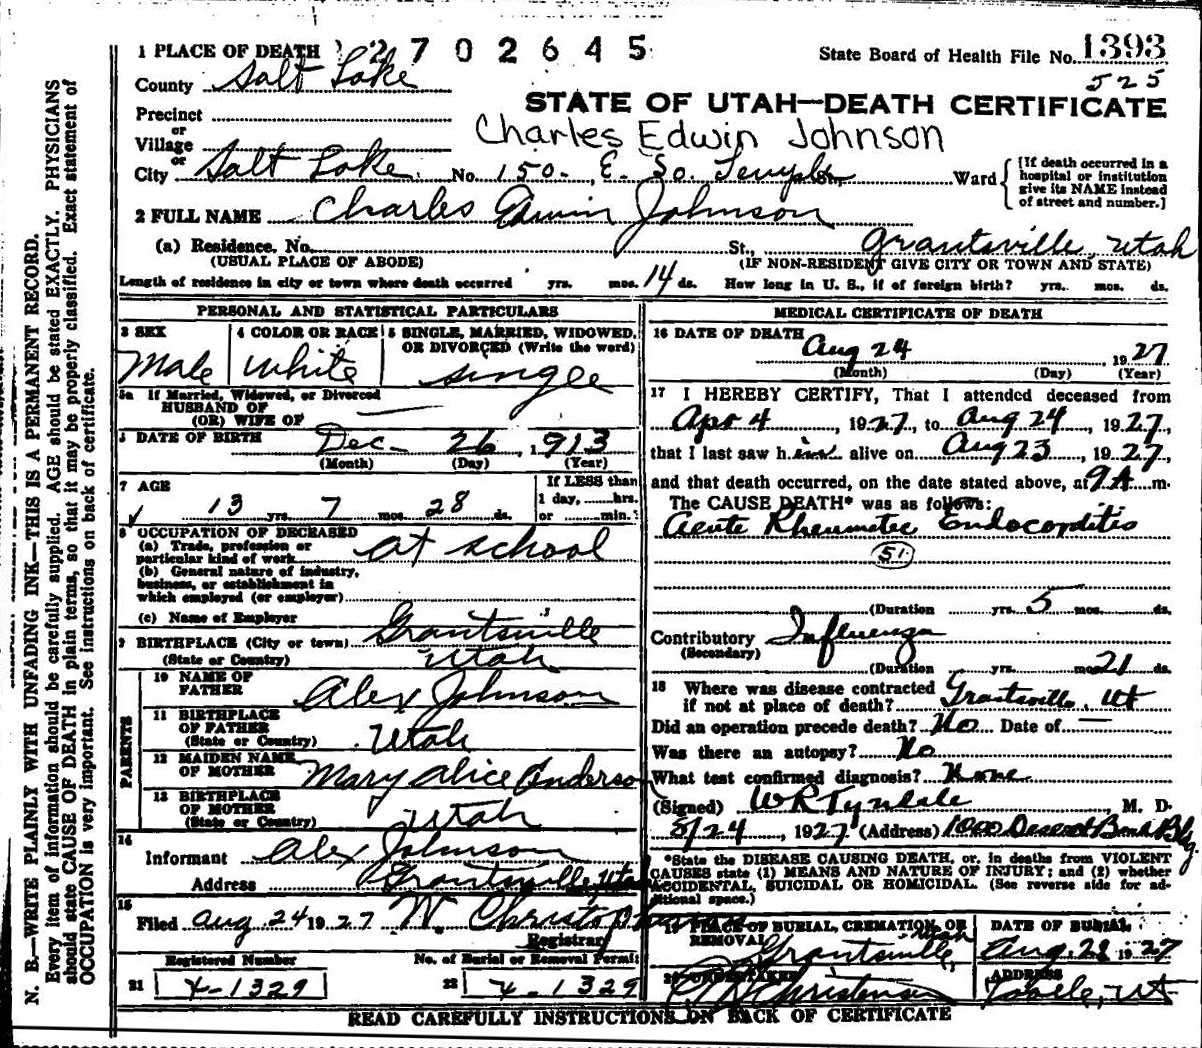 1 PLACE OF DEATH 2702645 State Board of Health File No. 1393
County Salt Lake 525
STATE OF UTAH—DEATH CERTIFICATE
Precinct
or
Village Charles Edwin Johnson
or
City Salt Lake No. 150- E. So. Temple St., Ward
[If death occurred in a hospital or institution give its NAME instead of street and number.]
2 FULL NAME Charles Edwin Johnson
(a) Residence. No. St., Grantsville, Utah
(USUAL PLACE OF ABODE) (IF NON-RESIDENT GIVE CITY OR TOWN AND STATE)
Length of residence in city or town where death occurred yrs. mos. 14 ds. How long in U. S., if of foreign birth? yrs. mos. ds.
PERSONAL AND STATISTICAL PARTICULARS
3 SEX
Male
4 COLOR OR RACE
White
5 SINGLE, MARRIED, WIDOWED, OR DIVORCED (Write the word)
Single
5a If Married, Widowed, or Divorced
HUSBAND OF
(OR) WIFE OF —
6 DATE OF BIRTH Dec- 26, 1913
(Month) (Day) (Year)
7 AGE
13 yrs. 7 mos. 28 ds.
If LESS than
1 day, hrs.
or min.?
8 OCCUPATION OF DECEASED
(a) Trade, profession or
particular kind of work at school
(b) General nature of industry,
business, or establishment in
which employed (or employer)
(c) Name of Employer
9 BIRTHPLACE (City or town) Grantsville
(State or Country) Utah
PARENTS
10 NAME OF
FATHER Alex Johnson
11 BIRTHPLACE
OF FATHER
(State or Country) Utah
12 MAIDEN NAME
OF MOTHER Mary Alice Anderson
13 BIRTHPLACE
OF MOTHER
(State or Country) Utah
14
Informant Alex Johnson
Address Grantsville, Utah
15
Filed Aug. 24 1927 W. Christopherson
Registrar
Registered Number
21 X-1329
No. of Burial or Removal Permit
22 X-1329
MEDICAL CERTIFICATE OF DEATH
16 DATE OF DEATH
Aug 24 1927
(Month) (Day) (Year)
17 I HEREBY CERTIFY, That I attended deceased from
Apr 4, 1927, to Aug 24, 1927,
that I last saw him alive on Aug 23, 1927,
and that death occurred, on the date stated above, at 9 A m.
The CAUSE DEATH* was as follows:
Acute Rheumatic Endocarditis
51
(Duration yrs. 5 mos. ds.
Contributory Influenza
(Secondary)
(Duration yrs. mos. 21 ds.
18 Where was disease contracted
if not at place of death? Grantsville, Ut
Did an operation precede death? No Date of —
Was there an autopsy? No
What test confirmed diagnosis? None
(Signed) W R Tyndale, M. D.
8/24, 1927 (Address) 1000 Deseret Bank Blg.
*State the DISEASE CAUSING DEATH, or, in deaths from VIOLENT
CAUSES state (1) MEANS AND NATURE OF INJURY; and (2) whether
ACCIDENTAL, SUICIDAL OR HOMICIDAL. (See reverse side for additional space.)
19 PLACE OF BURIAL, CREMATION, OR
REMOVAL
Grantsville, Utah
DATE OF BURIAL
Aug. 28 1927
20 UNDERTAKER
Christensen
ADDRESS
Tooele, Ut
READ CAREFULLY INSTRUCTIONS ON BACK OF CERTIFICATE
N. B.—WRITE PLAINLY WITH UNFADING INK—THIS IS A PERMANENT RECORD.
Every item of information should be carefully supplied. AGE should be stated EXACTLY. PHYSICIANS
should state CAUSE OF DEATH in plain terms, so that it may be properly classified. Exact statement of
OCCUPATION is very important. See instructions on back of certificate.